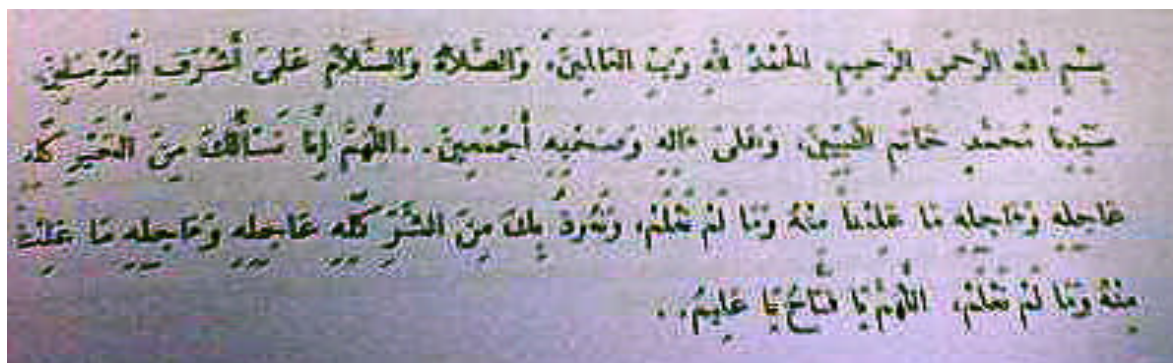 بِسْمِ اللهِ الرَّحْمَنِ الرَّحِيمِ، الحَمْدُ للهِ رَبِّ العَالَمِينَ، وَالصَّلَاةُ وَالسَّلَامُ عَلَى أَشْرَفِ الْمُرْسَلِينَ
سَيِّدِنَا مُحَمَّدٍ خَاتَمِ النَّبِيِّينَ، وَعَلَى ءَالِهِ وَصَحْبِهِ أَجْمَعِينَ.. اللَّهُمَّ إِنَّا نَسْأَلُكَ مِنَ الْخَيْرِ كُلِّهِ
عَاجِلِهِ وَءَاجِلِهِ مَا عَلِمْنَا مِنْهُ وَمَا لَمْ نَعْلَمْ، وَنَعُوذُ بِكَ مِنَ الشَّرِّ كُلِّهِ عَاجِلِهِ وَءَاجِلِهِ مَا عَلِمْنَا
مِنْهُ وَمَا لَمْ نَعْلَمْ، اللَّهُمَّ يَا فَتَّاحُ يَا عَلِيمُ..